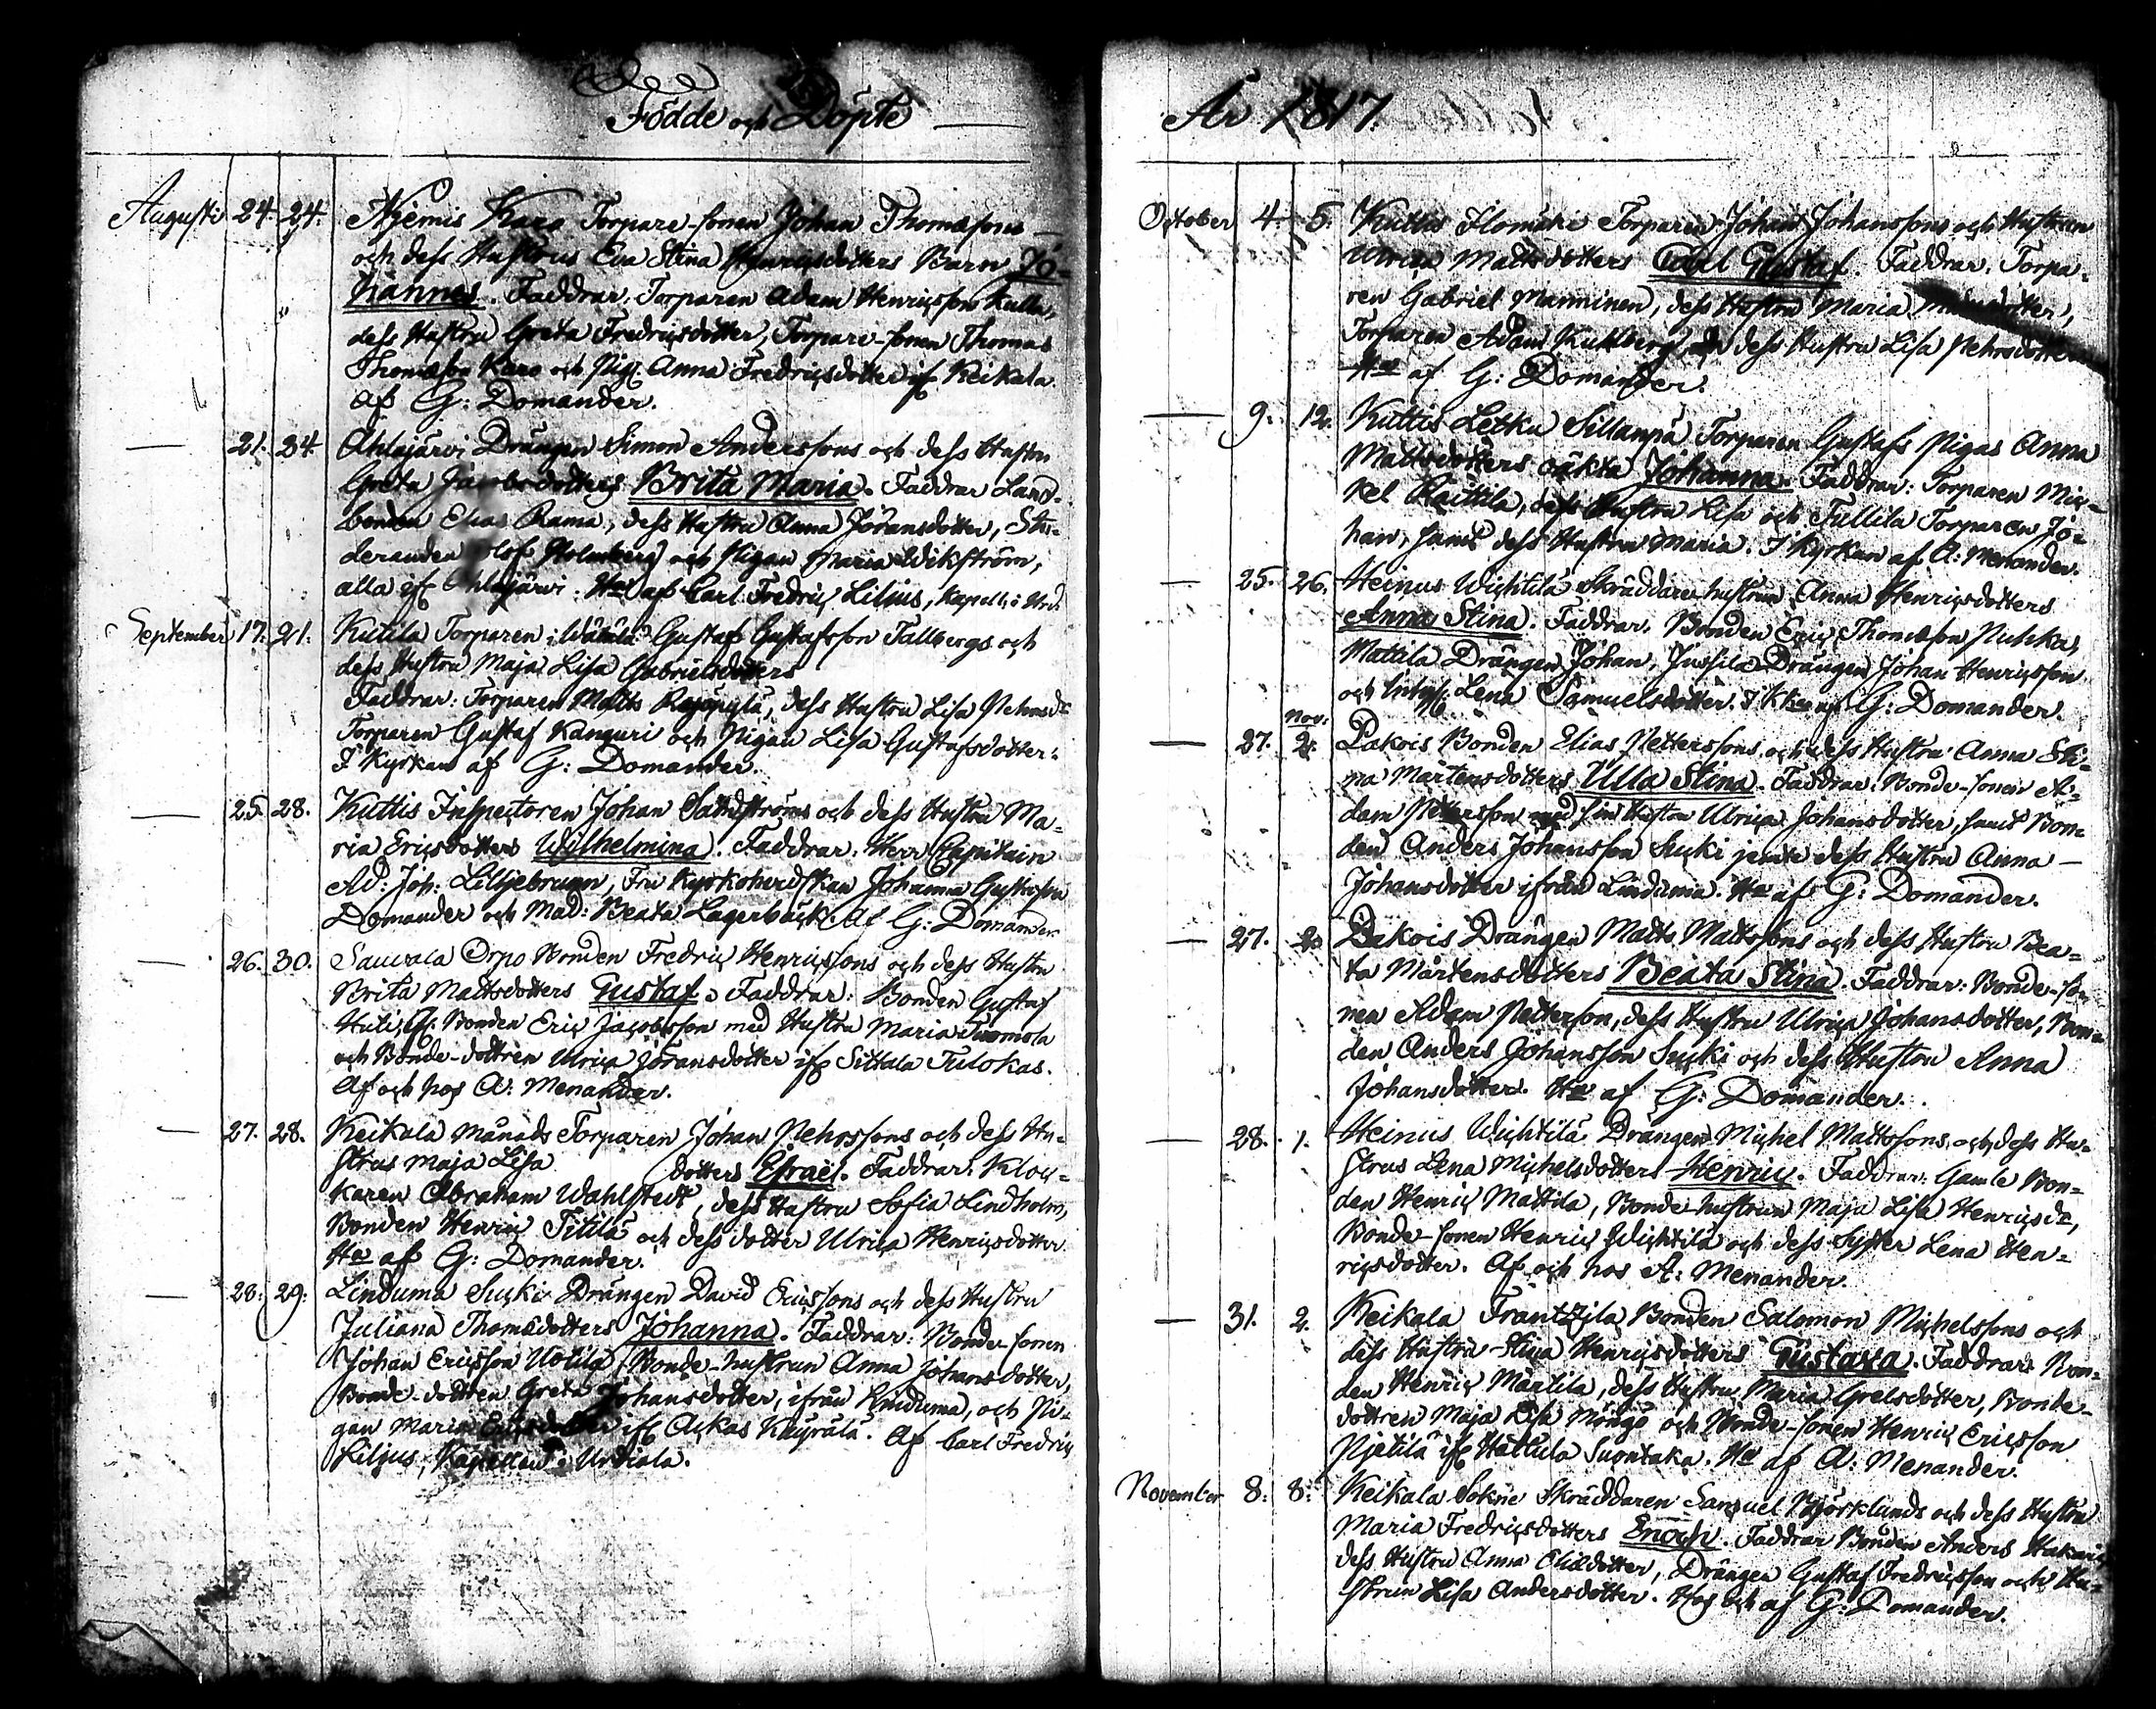 Födde och Döpte
Augusti 24. 24. Njemis Karo Torpare-sonen Johan Thomæsons
och dess Hustrus Eva Stina Henricsdotters Barn Jo-
hannes. Faddrar. Torparen Adam Henricsson Kulla,
dess Hustru Greta Fredricsdotter, Torpare-sonen Thomas
Thomæson Karo och Pig. Anna Fredricsdotter if Keikala
af G: Domander.
— 21. 24 Ahlajärvi Drängen Simon Anderssons och dess Hustru
Greta Jacobsdotters Brita Maria. Faddrar Land-
bonden Elias Rama, dess Hustru Anna Jöransdotter, Stu-
deranden Olof Holmberg och Pigan Maria Wikström,
alla if Ahlajärvi. H:a af Carl Fredric Lilius, Kapell: i Urd:
September 17. 21. Kutila Torparen i Gustaf Gustafsson Tallbergs och
dess Hustru Maja Lisa Gabrielsdotters
Faddrar: Torparen Matts, dess Hustru Lisa Pehrsd:r
Torparen Gustaf Kanguri och Pigan Lisa Gustafsdotter.
I Kyrkan af G: Domander.
— 25. 28. Kuttis Inspectoren Johan Sandströms och dess Hustru Ma-
ria Ericsdotters Wilhelmina. Faddrar. Herr Capitain
Ad: Joh: Liljebrunn, Fru Kyrkoherdskan Johanna Gustafva
Domander och Mad: Beata Lagerbäck. Af G: Domander.
— 26. 30. Sauvala Orpo Bonden Fredric Henricssons och dess Hustru
Brita Mattsdotters Gustaf. Faddrar: Bonden Gustaf
Huti, Bonden Eric Jacobsson med Hustru Maria Tuomola
och Bonde-dottren Ulrica Jöransdotter if Sittala Tulokas.
Af och hos A: Menander.
— 27. 28. Keikala Månads Torparen Johan Pehrssons och dess Hu-
strus Maja Lisa dotters Esrael. Faddrar. Kloc-
karen Abraham Wahlstedt, dess Hustru Sofia Lindholm,
Bonden Henric Titilä och dess dotter Ulrica Henricsdotter
H:a af G: Domander.
— 28. 29. Linduma Sucki Drängen David Ericssons och dess Hustru
Juliana Thomædotters Johanna. Faddrar: Bonde-sonen
Johan Ericsson Uotila, Bonde-hustrun Anna Johansdotter,
Bonde-dottren Greta Johansdotter, ifrån Linduma, och Pi-
gan Maria Ericsdotter if Ackas Kayrälä. Af Carl Fredric
Lilius, Kapellan i Urdiala.
År 1817.
October 4. 5. Kuttis Ilomäki Torparen Johan Johanssons och Hustrun
Ulrica Mattsdotters Carl Gustaf. Faddrar. Torpa-
ren Gabriel Manninen, dess Hustru Maria
Torparen Adam Kuhlberg och dess Hustru Lisa Pehrsdotter.
H:a af G: Domander.
— 9. 12. Kuttis Letku Sillanpä Torparen Gustafs Pigas Anna
Mattsdotters oäkta Johanna. Faddrar: Torparen Mic-
kel Raittila, dess Hustru Lisa och Tullila Torparen Jo-
han, samt dess Hustru Maria. I Kyrkan af A: Menander.
— 25. 26. Heinus Wichtilä Skräddare hustrun Anna Henricsdotters
Anna Stina. Faddrar. Bonden Eric Thomæson Puhka,
Mattila Drängen Johan, Jussila Drängen Johan Henricsson
och Inhys: Lena Samuelsdotter. I K:kan af G: Domander.
— 27. Nov. 2. Pakois Bonden Elias Petterssons och dess Hustru Anna Sti-
na Mårtensdotters Ulla Stina. Faddrar. Bonde-sonen A-
dam Pettersson med sin Hustru Ulrica Johansdotter, samt Bon-
den Anders Johansson Sucki jemte dess Hustru Anna —
Johansdotter ifrån Linduma. H:a af G: Domander.
— 27. 2. Pakois Drängen Matts Mattssons och dess Hustru Bea-
ta Mårtensdotters Beata Stina. Faddrar: Bonde-so-
nen Adam Pettersson, dess Hustru Ulrica Johansdotter, Bon-
den Anders Johansson Sucki och dess Hustru Anna
Johansdotter. H:a af G: Domander.
— 28. 1. Heinus Wichtilä Drängen Michel Mattssons och dess Hu-
strus Lena Michelsdotters Henric. Faddrar. Gamle Bon-
den Henric Mattila, Bonde-hustrun Maja Lisa Henricsd:r,
Bonde-sonen Henric Wichtilä och dess Syster Lena Hen-
ricsdotter. Af och hos A: Menander.
— 31. 2. Keikala Frantzila Bonden Salomon Michelssons och
dess Hustru Stina Henricsdotters Gustava. Faddrar: Bon-
den Henric Märtila, dess Hustru Maria Grelsdotter, Bonde-
dottren Maja Lisa Mongo och Bonde-sonen Henric Ericsson
Pjetila if Hattula Suontaka. H:a af A: Menander.
November 8. 8. Keikala Sokne Skräddaren Samuel Björklunds och dess Hustru
Maria Fredricsdotters Enoch. Faddrar Bonden Anders Hakari,
dess Hustru Anna Eliædotter, Drängen Gustaf Fredricsson och Hu-
strun Lisa Andersdotter. Hos och af G: Domander.